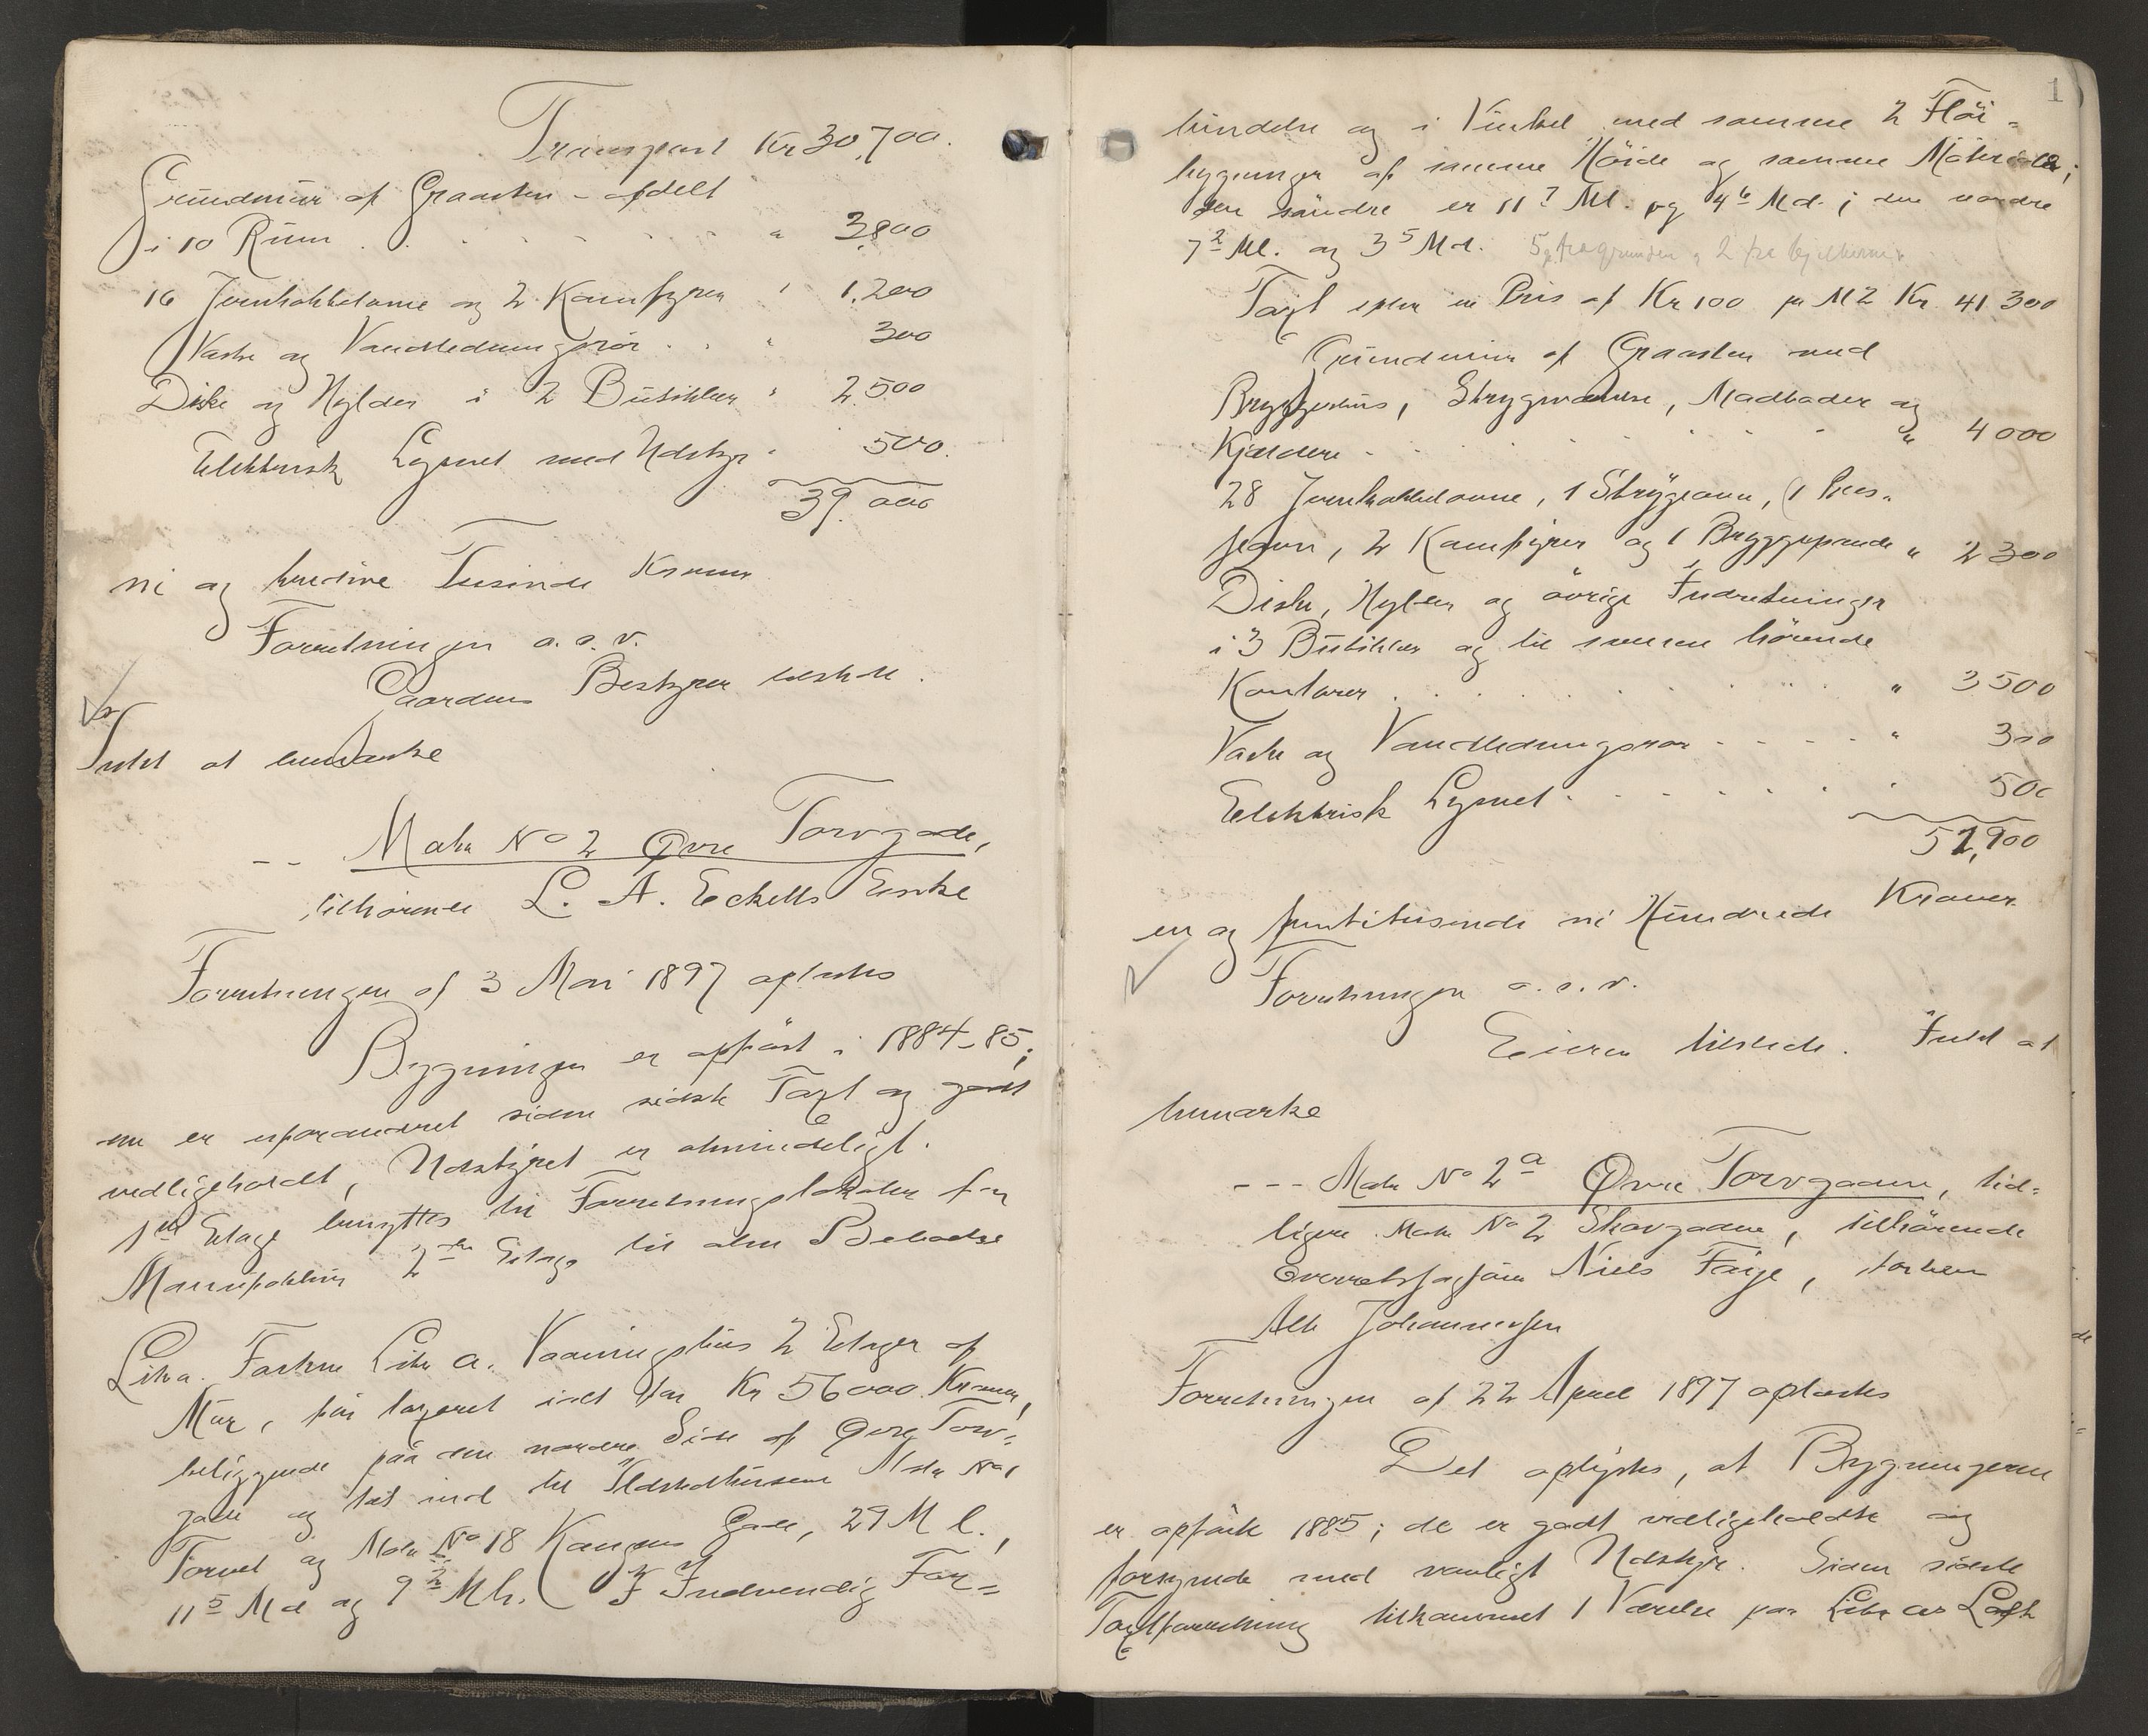 Transport Kr 30,700.
Grundmur af Graasten - afdelt
i 10 Rum . . . . . . " 3,800
16 Jernkakkelovne og 2 Komfyrer " 1,200
Vaske og Vandledningsrør . . " 300
Diske og Hylder i 2 Butikker " 2,500
Elektrisk Lysnet med Udstyr " 500.
39.000
ni og tredive Tusinde Kroner
Forretningen o.s.v.
Gaardens Bestyrer tilstede.
Intet at bemærke
-- Matr No 2 Øvre Torvgade,
tilhørende L. A. Eckells Enke
Forretningen af 3 Mai 1897 oplæstes
Bygningen er opført i 1884-85;
den er uforandret siden sidste Taxt og godt
vedligeholdt, Udstyret er almindeligt.
1ste Etage benyttes til Forretningslokaler for
Manufaktur 2den Etage til alm Beboelse
Litra. Fortove Litr a. Vaaningshus 2 Etager af
Mur, før taxeret indt for Kr 56000 Kroner,
beliggende paa den nordre Side af Øvre Torv-
gade og tæt ind til Ildstedhusene Matr No 1
Torvet og Matr No 18 Kongens Gade, 29 M l.,
11 5 M d og 9 2 M h. I Indvendig For-
1
bindelse og i Vinkel med samme 2 Fløi-
bygninger af samme Høide og samme Materiale;
den søndre er 11 7 Ml. og 4 6 Md. ; den nordre
7 2 Ml. og 3 5 Md. 5 fra grunden 2 fra bjelkerne
Taxt efter en Pris af Kr 100 pr M2 Kr. 41 300
Grundmur af Graasten med
Bryggerhus, Strygeværelse, Madboder og
Kjeldere . . . . . . " 4 000
28 Jernkakkelovne, 1 Strygeovn, 1 Pres-
jern, 2 Komfyrer og 1 Bryggepande " 2 300
Diske, Hylder og øvrige Indretninger
i 3 Butikker og til samme hørende
Kontorer . . . . . . " 3 500
Vaske og Vandledningsrør - - - - " 300
Elektrisk Lysnet . . . . . . 500
51,900
en og femtitusinde ni Hundrede Kroner
Forretningen o.s.v.
Eieren tilstede. Intet at
bemærke
--- Matr No 2 a Øvre Torvgaden, tid-
ligere Matr No 2 Skovgaden, tilhørende
Overretssagfører Niels Faye, forhen
Alb Johannesen
Forretningen af 22 April 1897 oplæstes
Det oplystes, at Bygningerne
er opførte 1885; de er godt vedligeholdte og
forsynede med vanligt Udstyr. Siden sidste
Taxtforretning tilkommet 1 Værelse paa Litr as Loft